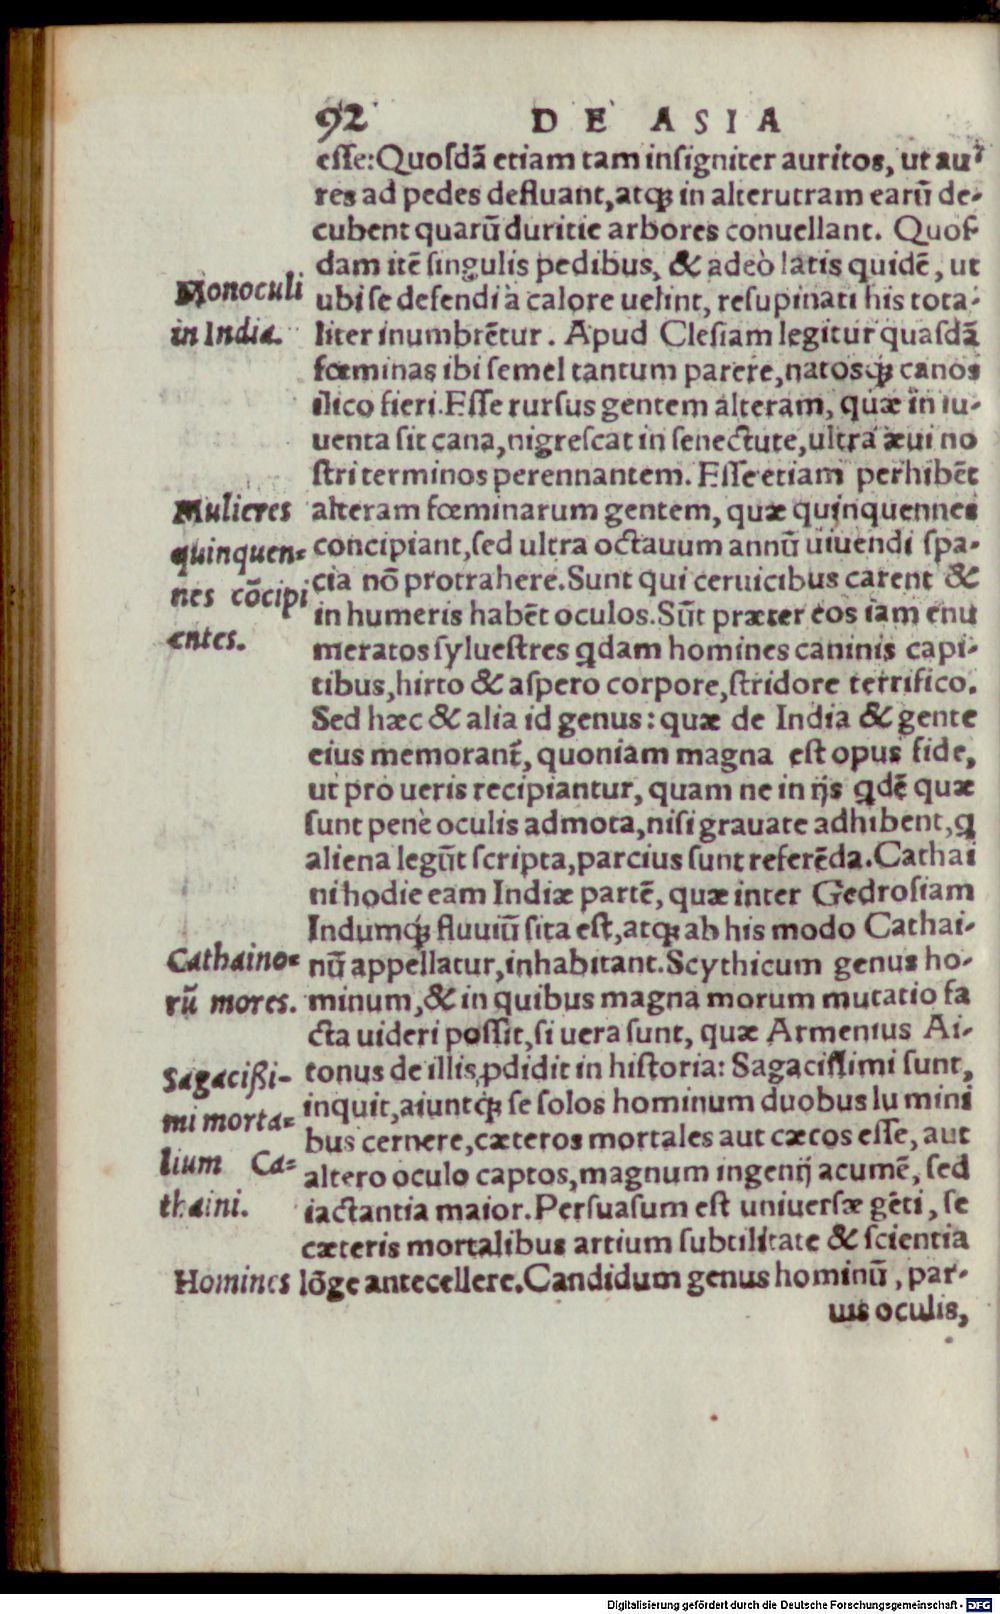 92 DE ASIA
esse:Quosdã etiam tam insigniter auritos, ut au-
res ad pedes defluant,atq; in alterutram earũ de-
cubent quarũ duritie arbores conuellant. Quos-
dam itẽ singulis pedibus, & adeò latis quidẽ, ut
Monoculi
in India.
ubi se defendi à calore uelint, resupinati his tota-
liter inumbrẽtur. Apud Clesiam legitur quasdã
fœminas ibi semel tantum parere,natosq; canos
ilico fieri.Esse rursus gentem alteram, quæ in iu-
uenta sit cana,nigrescat in senectute,ultra æui no
stri terminos perennantem. Esse etiam perhibẽt
Mulieres
quinquen-
nes cõcipi
entes.
alteram fœminarum gentem, quæ quinquennes
concipiant,sed ultra octauum annũ uiuendi spa-
cia nõ protrahere.Sunt qui ceruicibus carent &
in humeris habẽt oculos.Sũt præter eos iam enu
meratos syluestres qdam homines caninis capi-
tibus,hirto & aspero corpore,stridore terrifico.
Sed hæc & alia id genus: quæ de India & gente
eius memorant̃, quoniam magna est opus fide,
ut pro ueris recipiantur, quam ne in ijs qdẽ quæ
sunt penè oculis admota,nisi grauate adhibent,q
aliena legũt scripta,parcius sunt referẽda.Cathai
ni hodie eam Indiæ partẽ, quæ inter Gedrosiam
Indumq; fluuiũ sita est,atq; ab his modo Cathai-
Cathaino-
rũ mores.
nũ appellatur,inhabitant.Scythicum genus ho-
minum,& in quibus magna morum mutatio fa
cta uideri possit,si uera sunt, quæ Armenius Ai-
tonus de illis ꝓdidit in historia: Sagacissimi sunt,
Sagacißi-
mi morta-
lium Ca-
thaini.
inquit,aiuntq; se solos hominum duobus lu mini
bus cernere,cæteros mortales aut cæcos esse, aut
altero oculo captos,magnum ingenij acumẽ, sed
iactantia maior.Persuasum est uniuersæ gẽti, se
cæteris mortalibus artium subtilitate & scientia
Homines
lõge antecellere.Candidum genus hominũ, par-
uis oculis,
Digitalisierung gefördert durch die Deutsche Forschungsgemeinschaft - DFG